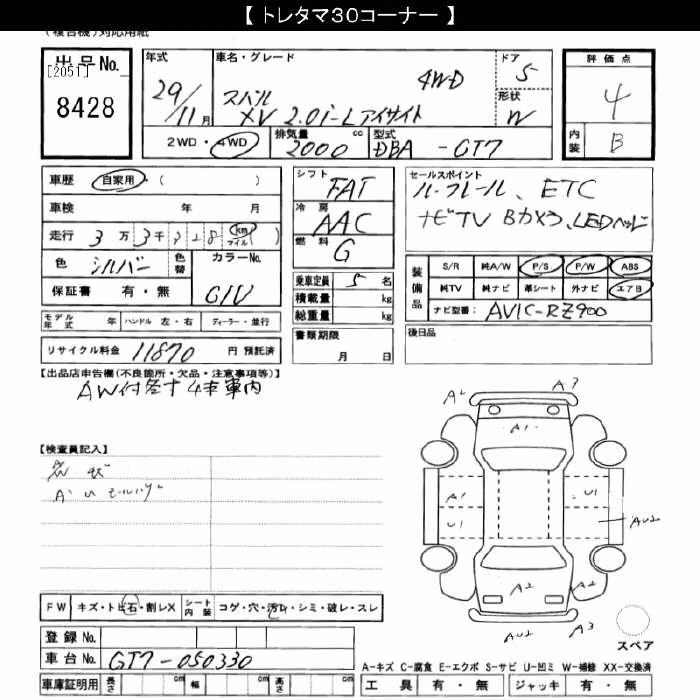 【 トレタマ30コーナー 】
(複合機)対応用紙
出品No.
[2051]
8428
年式
29/11月
車名・グレード
4WD
スバル
XV 2.0i-L アイサイト
ドア
5
形状
W
評価点
4
内装
B
2WD・4WD
排気量
2000 cc
型式
DBA - GT7
車歴 自家用・( )
車検 年 月
走行 3万3千328 km マイル ( )
色 シルバー 色替 カラーNo.
G1V
保証書 有・無
モデル年式 年 ハンドル 左・右 ディーラー・並行
リサイクル料金 11870 円 預託済
シフト
FAT
冷房
AAC
燃料
G
乗車定員 5 名
積載量 kg
総重量 kg
書類期限
月 日
セールスポイント
ルーフレール、ETC
ナビTV Bカメラ、LEDヘッド
装備品
S/R 純A/W P/S P/W ABS
純TV 純ナビ 革シート 外ナビ エアB
ナビ型番: AVIC-RZ900
後日品
【出品店申告欄(不良箇所・欠品・注意事項等)】
AW付 4本車内
【検査員記入】
A1
FW キズ・トビ石・割レX シート内装 コゲ・穴・汚レ・シミ・破レ・スレ
登録No.
車台No. GT7-050330
車庫証明用 長さ cm 幅 cm 高さ cm
A2
A3
A1
A1
U1
U1
AU2
A2
A2
AU2
A3
スペア
A-キズ C-腐食 E-エクボ S-サビ U-凹ミ W-補修 XX-交換済
工具 有・無 ジャッキ 有・無